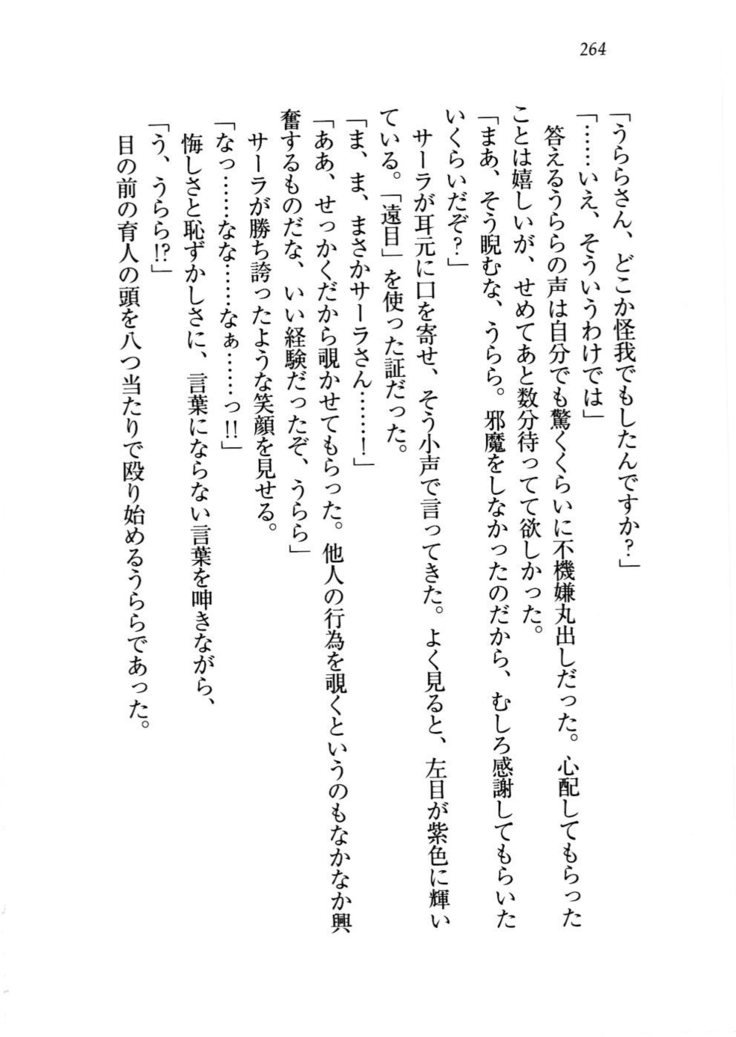 264
「うららさん、どこか怪我でもしたんですか?」
「……いえ、そういうわけでは」
答えるうららの声は自分でも驚くくらいに不機嫌丸出しだった。心配してもらった
ことは嬉しいが、せめてあと数分待ってて欲しかった。
「まあ、そう睨むな、うらら。邪魔をしなかったのだから、むしろ感謝してもらいた
いくらいだぞ?」
サーラが耳元に口を寄せ、そう小声で言ってきた。よく見ると、左目が紫色に輝い
ている。「遠目」を使った証だった。
「ま、ま、まさかサーラさん……!」
「ああ、せっかくだから覗かせてもらった。他人の行為を覗くというのもなかなか興
奮するものだな、いい経験だったぞ、うらら」
サーラが勝ち誇ったような笑顔を見せる。
「なっ……なな……なぁ……っ!!」
悔しさと恥ずかしさに、言葉にならない言葉を呻きながら、
「う、うらら!?」
目の前の育人の頭を八つ当たりで殴り始めるうららであった。